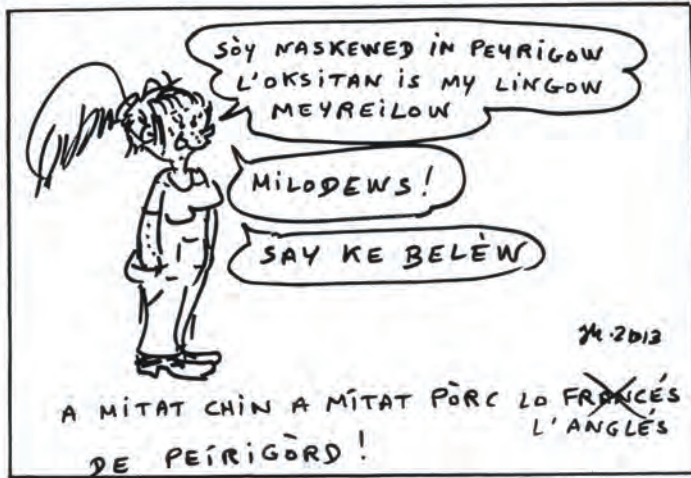 SÒY NASKEWED IN PEYRIGOW
L'OKSITAN IS MY LINGOW
MEYREILOW
MILODEWS!
SAY KE BELÈW
2013
A MITAT CHIN A MITAT PÒRC LO FRANCÉS
L'ANGLÉS
DE PEÍRIGÒRD!